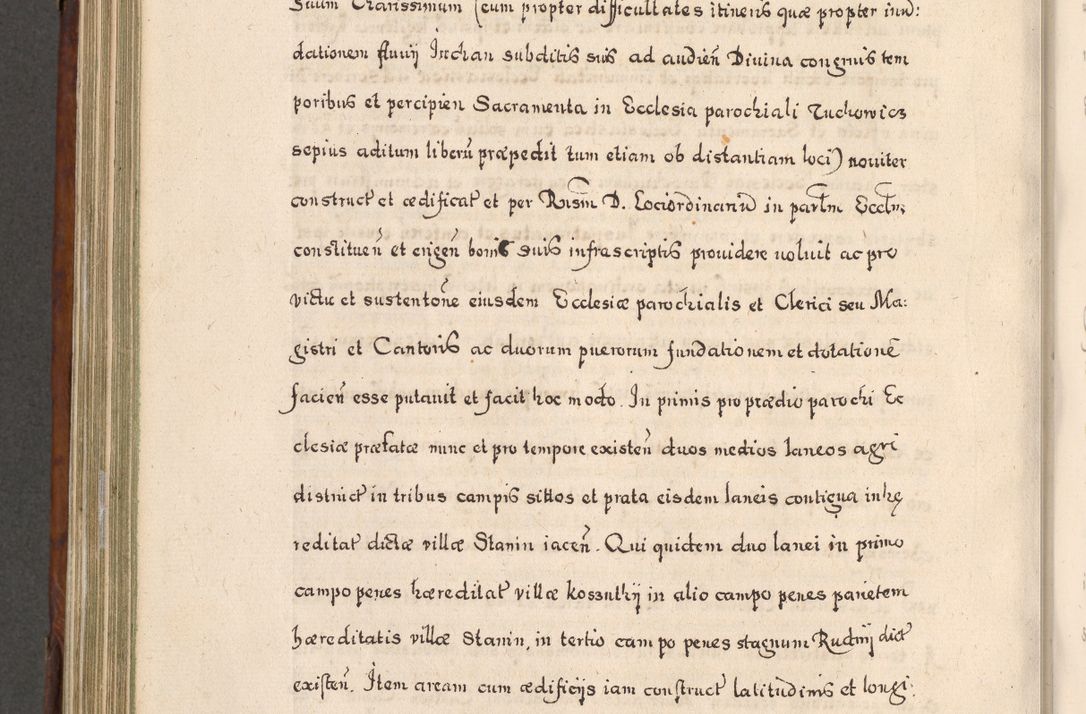 Suum Clarissimum (cum propter difficultates itineris quæ propter inū:
dationem fluvij Inchan subditis suis ad audień Divina congruis tem
poribus et percipień Sacramenta in Ecclesia parochiali Tuchowics
sepius aditum liberū præpedit tum etiam ob distantiam loci) noviter
construct et ædificat et per Rńsm̃ D. Lociordinariū in partm Eccłm
constitueń et erigeń bonis suis infrascriptis providere voluit ac pro
victu et sustentone eiusdem Ecclesiæ parochialis et Clerici seu Ma:
gistri et Cantoris ac duorum puerorum fundationem et dotationē
facień esse putavit et facit hoc modo. In primis pro prædio parochi Ec
clesiæ præfatæ nunc et pro tempore existeń duos medios laneos agri
district in tribus campis sittos et prata eisdem laneis contigua in hę
reditat dictæ villæ Stanin iaceń. Qui quidem duo lanei in primo
campo penes hæreditat villæ Kossuthÿ in alio campo penes parietem
hæreditatis villæ Stanin, in tertio campo penes stagnum Rudnÿ dict
existeń. Item aream cum ædificijs iam construct latitudinis et longi: